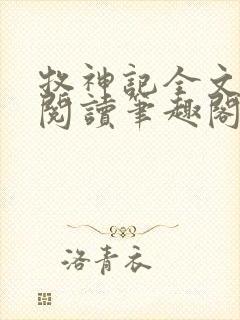 牧神記全文
閱讀筆趣閣
洛青衣